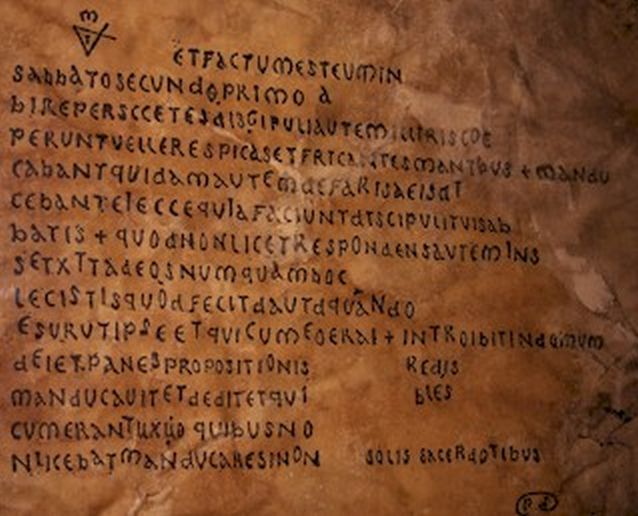 ETFACTUMESTEUMIN
SABBATOSECUNDOPRIMO A
BIREPERSCCETESDISGIPULIAUTEMILLIRISCOE
PERUNTVELLERESPICASETFRICANTESMANTBUS + MANDU
CABANTQUIDAMAUTEMDEFARISAEISDT
CEBANTEIECCEQUIAFACIUNTDTSCIPULITUISAB
BATIS + QUODNONLICETRESPONDENSAUTEMINS
SETXTTADEOSNUMQUAMHOC
LECISTISQUODFECITDAUTDQUANDO
ESURUTIPSEETQUICUMEOERAI + INTROIBITINDOMUM
DEIETPANESPROPOSITIONIS REDIS
MANDUCAUITETDEDITETQUI BLES
CUMERANTUXUO QUIBUSNO
NLICEBATMANDUCARESINON SOLIS SACERDOTIBUS
PD